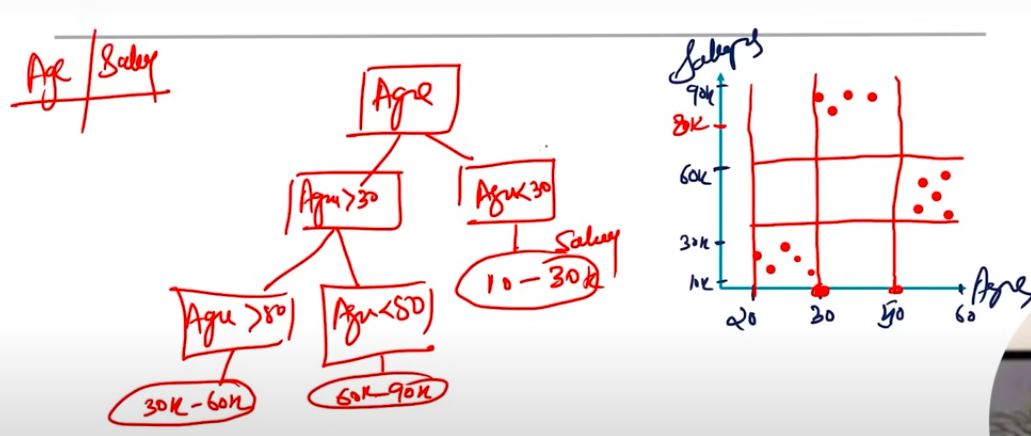 Age | Salary
Age
Age >30
Age <30
Salary
10 - 30k
Age >50
Age <50
30k - 60k
60k - 90k
Salary
90k
80k
60k
30k
10k
20 30 50 60
Ages